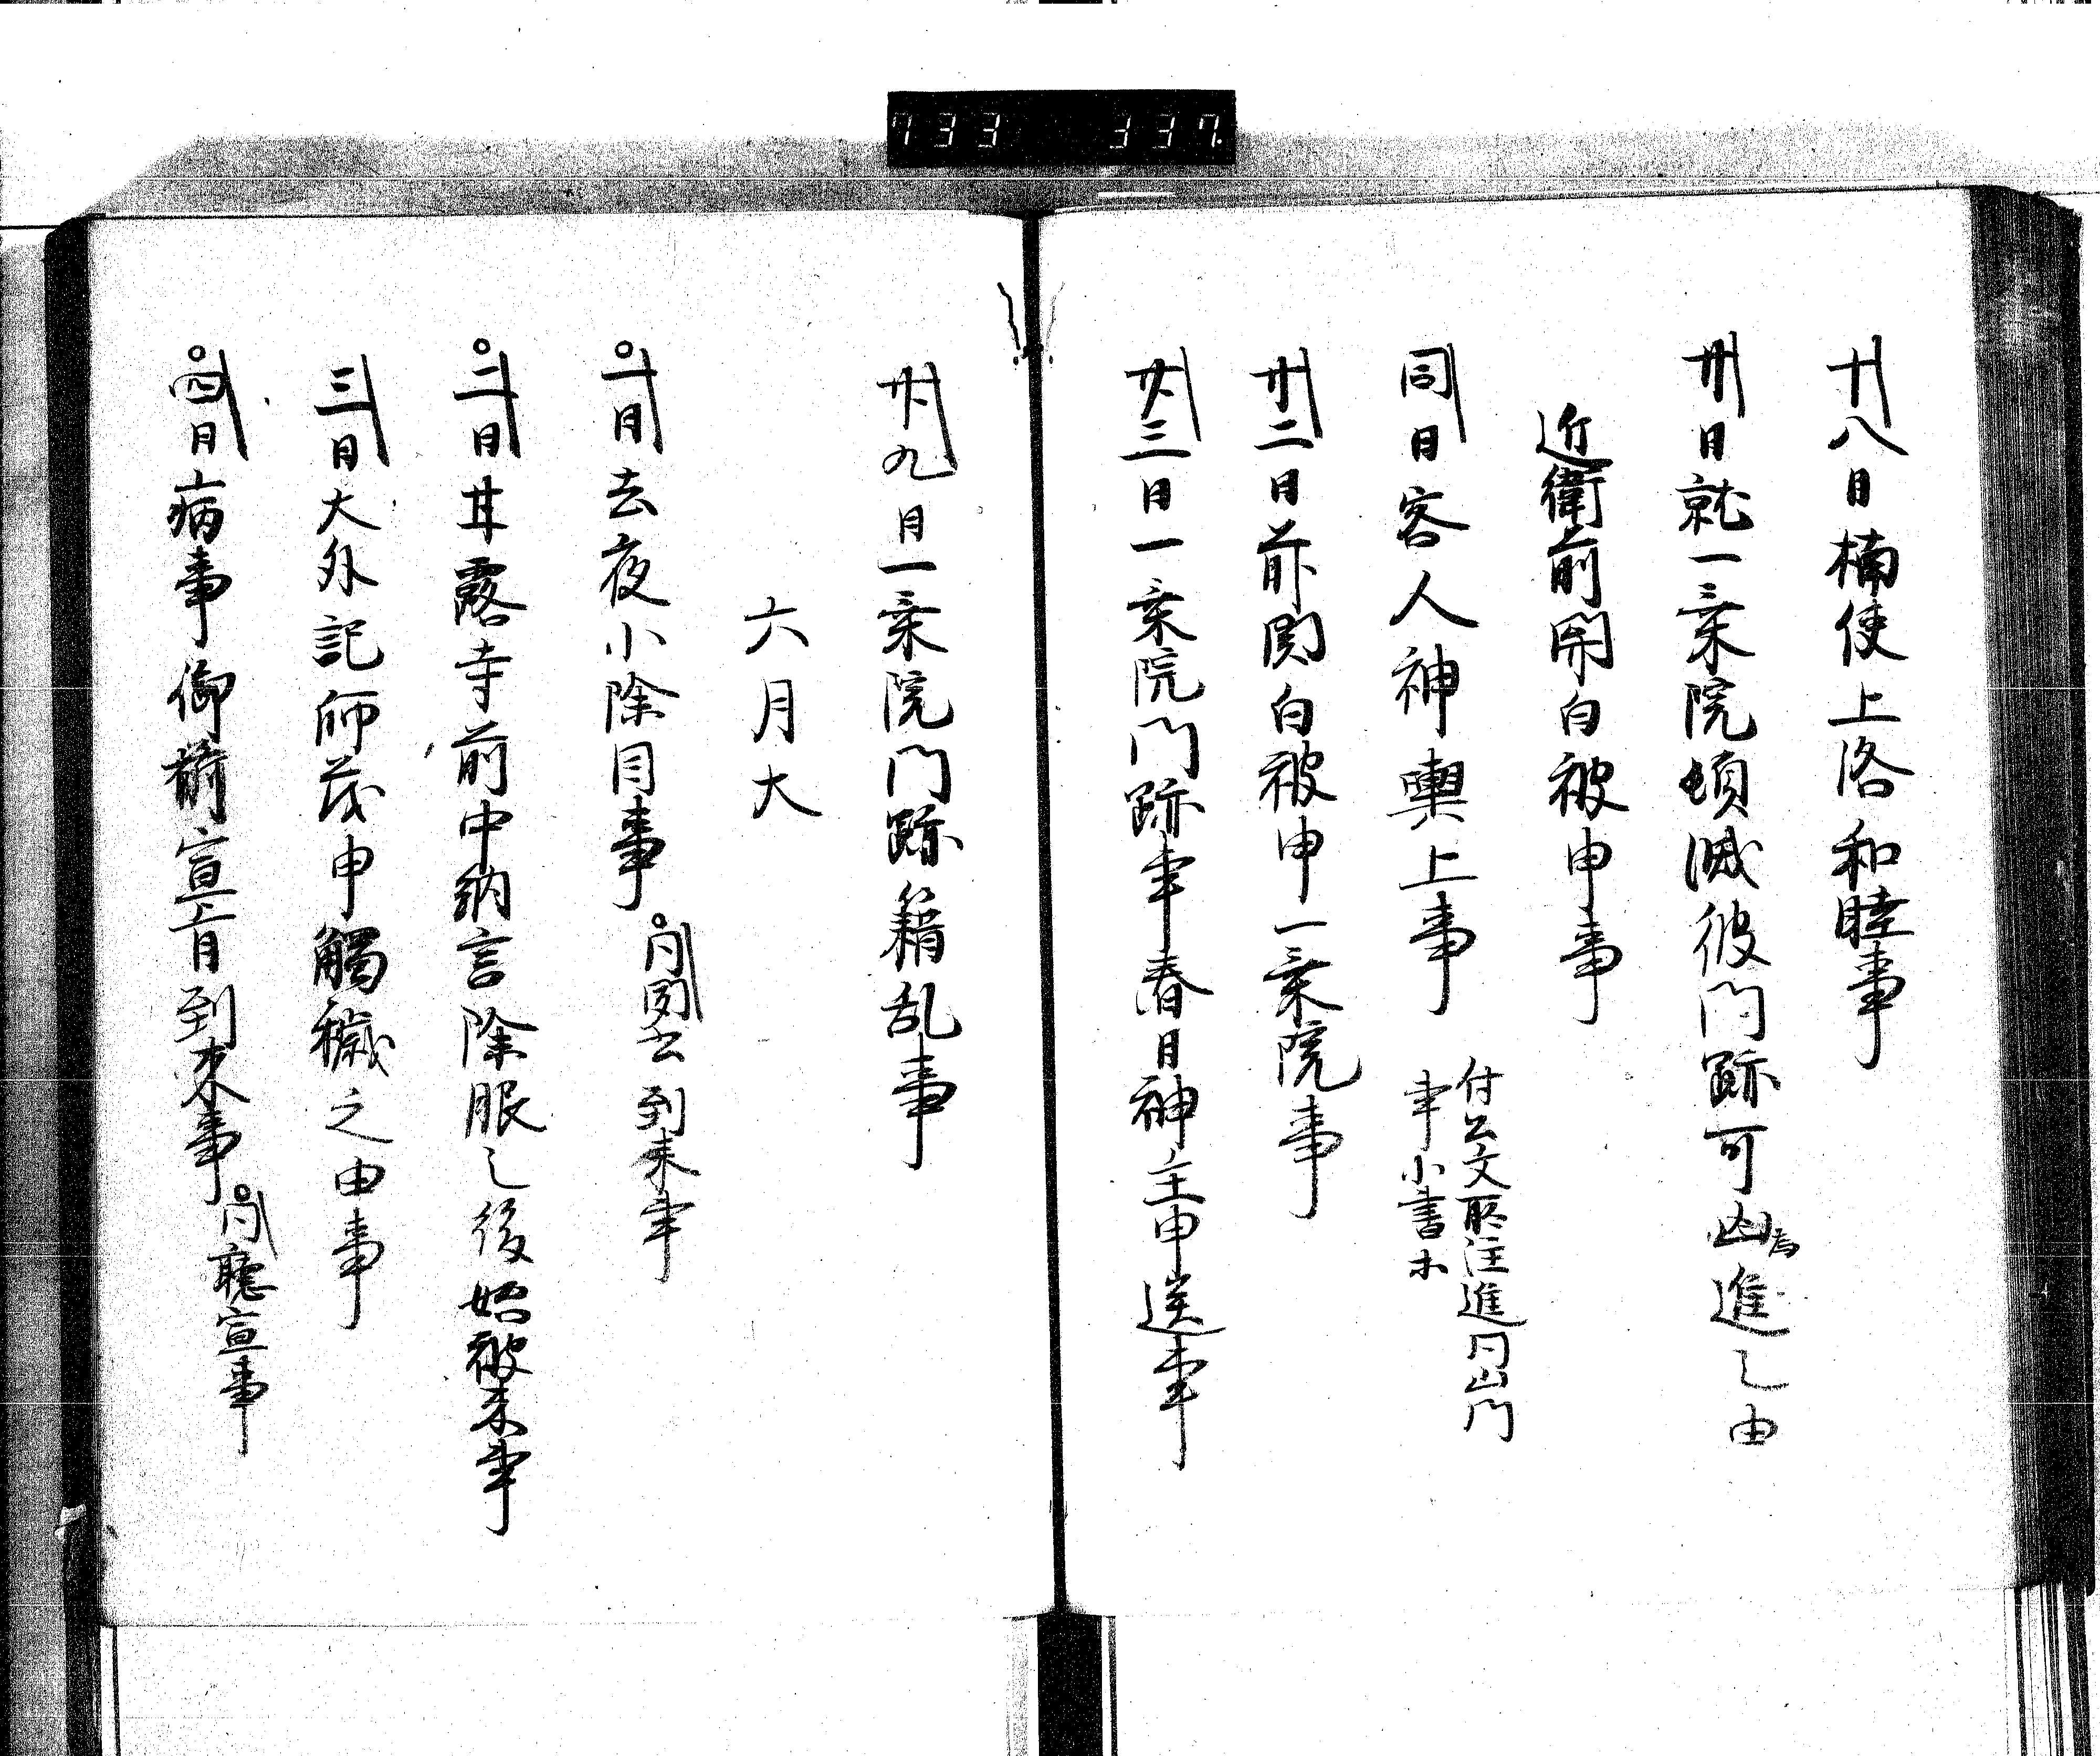 733 337
十八日楠使上洛和睦事
廿日就一乗院頓滅彼門跡可凶進之由
近衛前関白被申事
同日客人神輿上事
付公文所注進同山門
事小書木
廿二日前関白被申一乗院事
廿三日一乗院門跡事春日神主申送事
廿九日一乗院門跡籍乱事
六月大
一日去夜小除目事
同聞書到来事
二日甘露寺前中納言除服之後始被来事
三日大外記師茂申触穢之由事
四日病事御祈宣旨到来事
同聴宣事